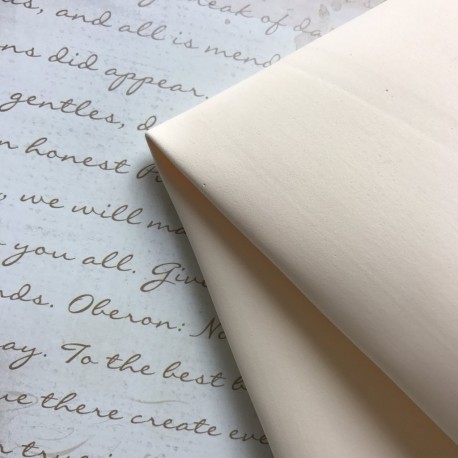 break of da
s, and all is mend
ns did appear.
gentles, d
n honest
, we will ma
you all. Give
nds. Oberon: No
ay. To the best b
ve there create eve